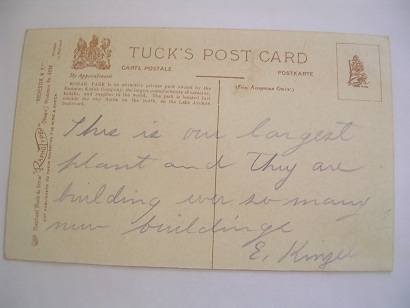 TUCK'S POST CARD
CARTE POSTALE
POSTKARTE
By Appointment
(FOR ADDRESS ONLY.)
KODAK PARK is an attractive private park owned by the
Eastman Kodak Company, the largest manufacturers of cameras,
kodaks, and supplies in the world. The park is located just
outside the city limits on the north, on the Lake Avenue
boulevard.
This is our largest
plant and They are
building ever so many
new buildings
E. Kinzel